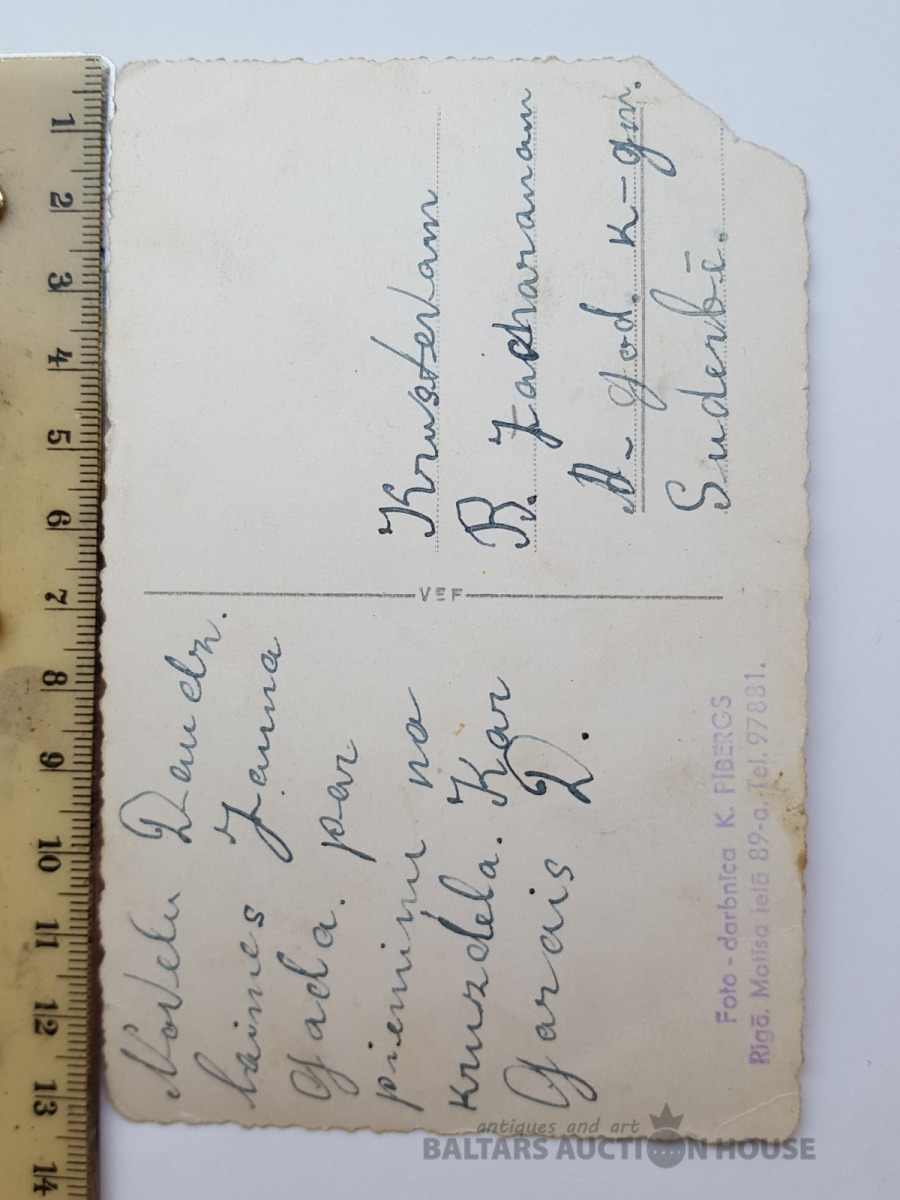 Novelu Daudz.
laimes Jauna
Gada. par
piemiņu no
Krusdēla. Kar
Garais D.
VEF
Krustevam
B. Zacharanam
A- god. K-gn.
Suderbē.
Foto - darbnīca K. PĪBERGS
Rīgā, Matīsa ielā 89-a. Tel. 97881.
1 2 3 4 5 6 7 8 9 10 11 12 13 14
antiques and art
BALTARS AUCTION HOUSE